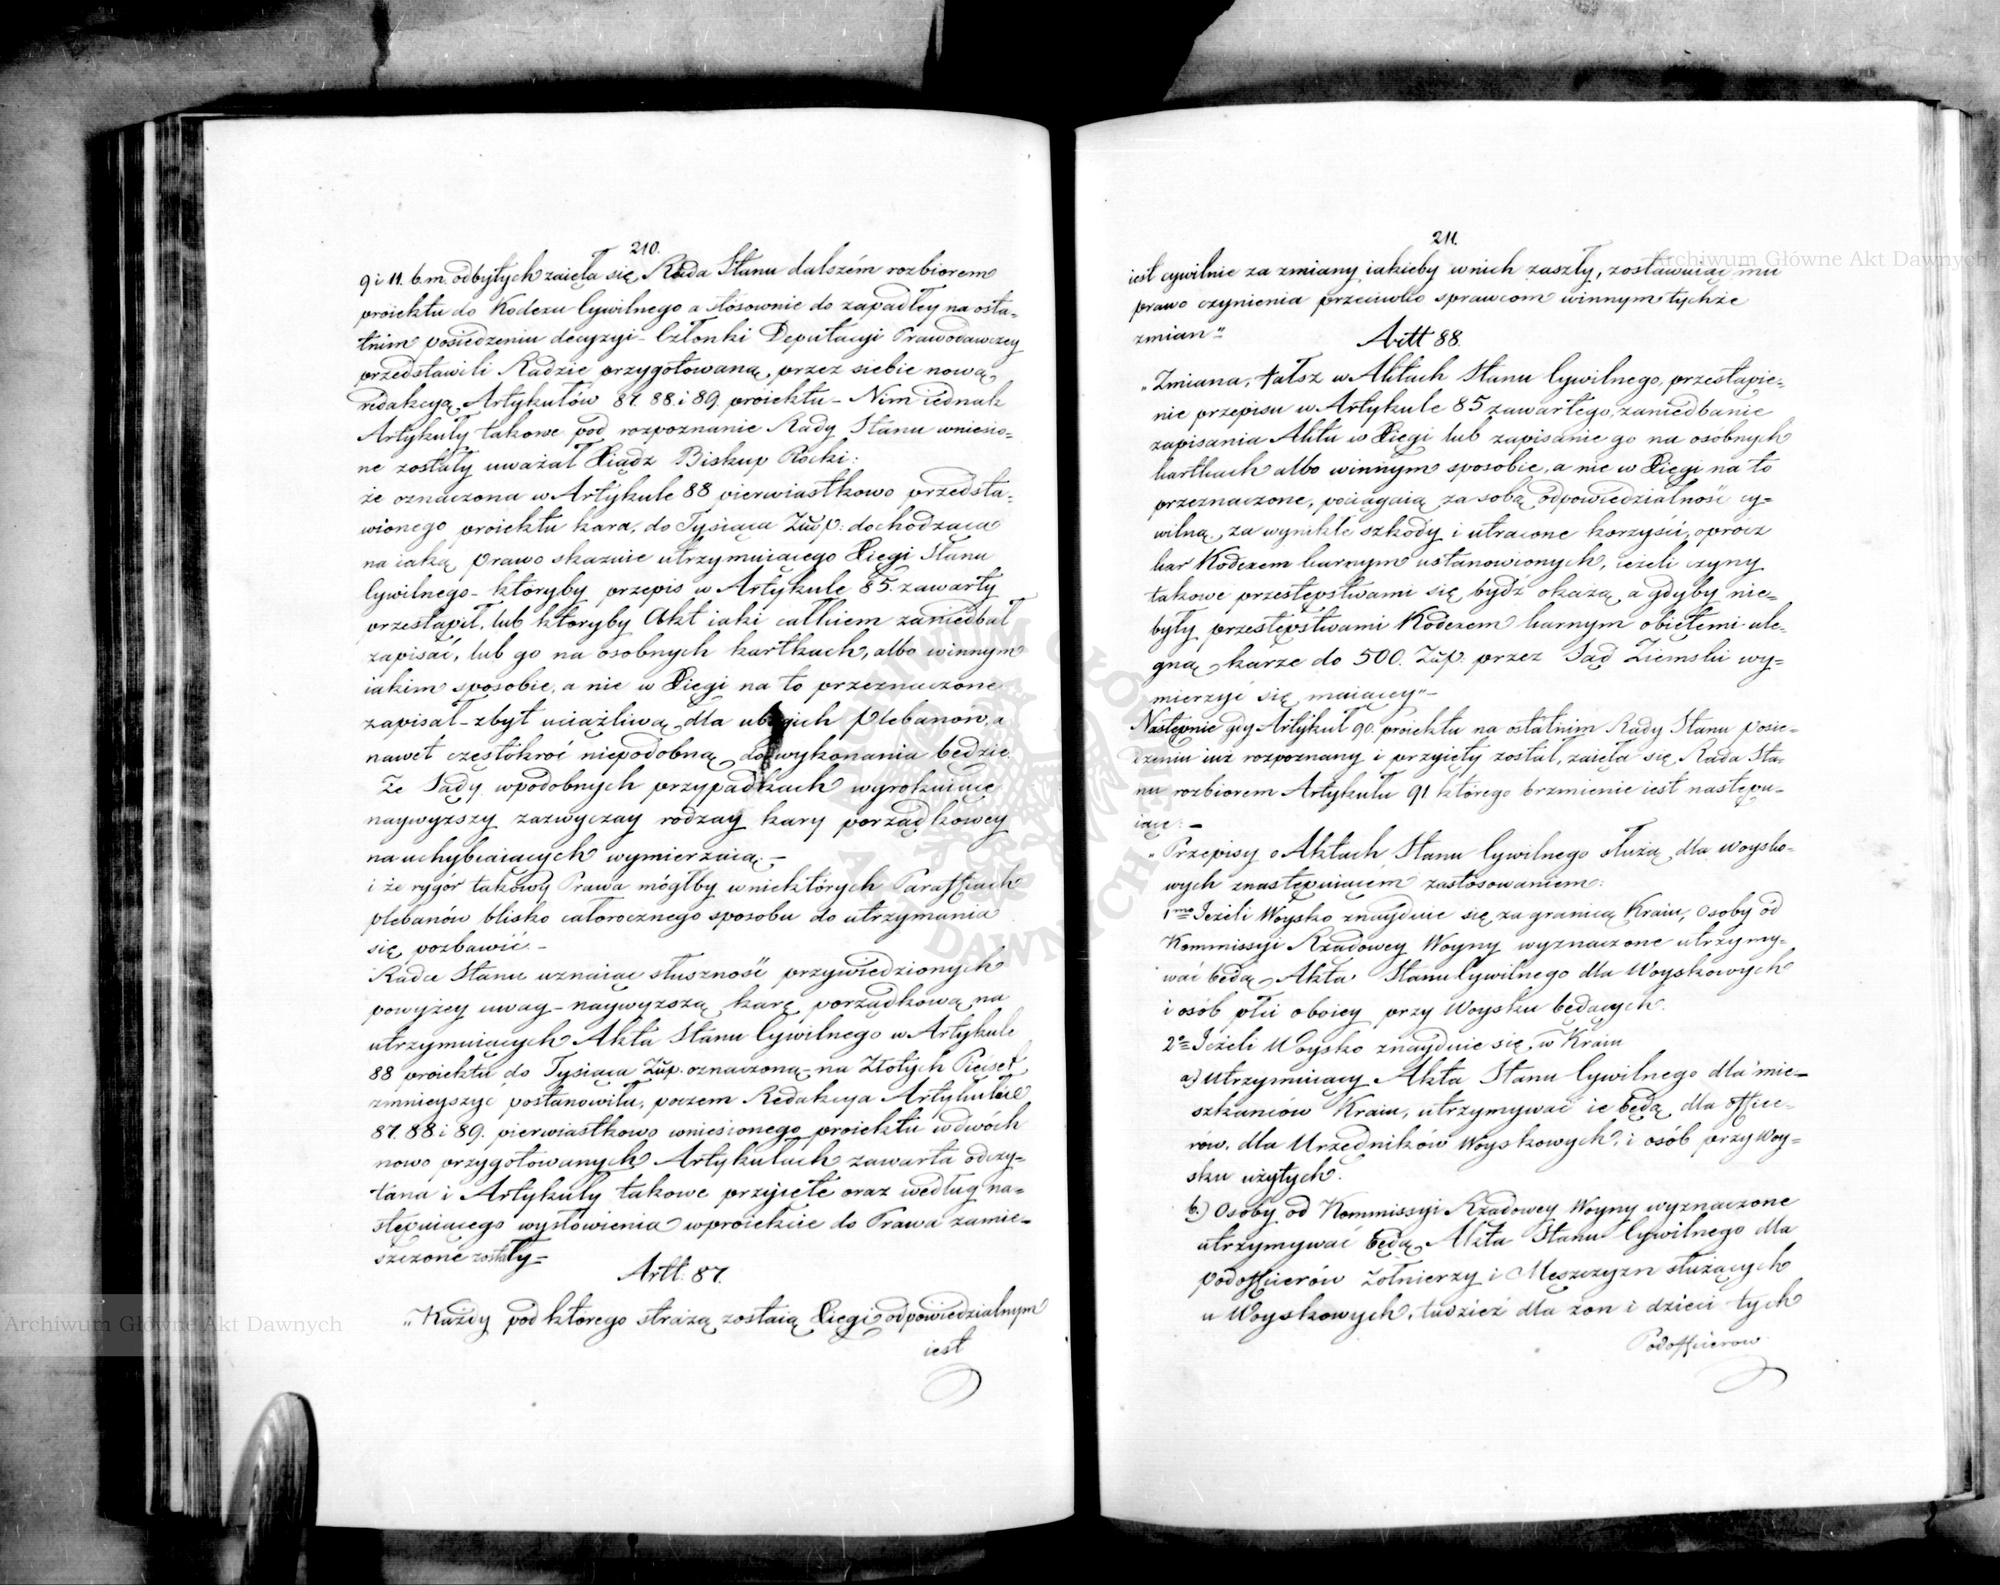 210.
9 i 11. b.m. odbytych zaięła się Rada Stanu dalszém rozbiorem
proiektu do Kodexu Cywilnego a stósownie do zapadłey na osta=
tnim posiedzeniu decyzyi – Członki Deputacyi Prawodawczey
przedstawili Radzie przygotowaną przez siebie nową
redakcyą Artykułów 87. 88. i 89. proiektu – Nim iednak
Artykuły takowe pod rozpoznanie Rady Stanu wniesio=
ne zostały uważał Xiądz Biskup Płocki:
że oznaczona w Artykule 88 pierwiastkowo przedsta=
wionego proiektu kara, do Tysiąca Złłp: dochodząca
na iaką Prawo skazuie utrzymuiącego Xięgi Stanu
Cywilnego – któryby przepis w Artykule 85. zawarty
przestąpił, lub któryby Akt iaki całkiem zaniedbał
zapisać, lub go na osobnych kartkach, albo winnym
iakim sposobie, a nie w Xięgi na to przeznaczone
zapisał – zbyt uciążliwą dla ubogich Plebanów, a
nawet częstokroć niepodobną do wykonania będzie.
Że Sądy wpodobnych przypadkach wyrokuiące
naywyższy zazwyczay rodzay kary porządkowey
na uchybiaiących wymierzaią –
i że rygór takowy Prawa mógłby w niektórych Paraffiach
plebanów blisko całorocznego sposobu do utrzymania
się pozbawić –
Rada Stanu uznaiąc słuszność przywiedzionych
powyżey uwag – naywyższą karę porządkową na
utrzymuiących Akta Stanu Cywilnego w Artykule
88 proiektu do Tysiąca Złłp. oznaczoną – na Złotych Pięćset
zmnieyszyć postanowiła, poczem Redakcya Artykułów
87. 88 i 89. pierwiastkowo wniesionego proiektu w dwóch
nowo przygotowanych Artykułach zawarta odczy=
tana i Artykuły takowe przyięte oraz według na=
stępuiącego wysłowienia wproiekcie do Prawa zamie=
szczone zostały=
Artt: 87.
„Każdy pod którego strażą zostaią Xięgi odpowiedzialnym
iest
211.
iest cywilnie za zmiany iakieby w nich zaszły, zostawuiąc mu
prawo czynienia przeciwko sprawcom winnym tychże
zmian”
Artt 88.
„Zmiana, fałsz w Aktach Stanu Cywilnego, przestąpie=
nie przepisu w Artykule 85 zawartego, zaniedbanie
zapisania Aktu w Xięgi lub zapisanie go na osóbnych
kartkach albo winnym sposobie, a nie w Xięgi na to
przeznaczone, pociągaią za sobą odpowiedzialność cy=
wilną, za wynikłe szkody i utracone korzyści, oprócz
kar Kodexem karnym ustanowionych, ieżeli czyny
takowe przestępstwami się bydź okażą, a gdyby nie=
były przestępstwami Kodexem karnym obiętemi ule=
gną karze do 500. Złłp: przez Sąd Ziemski wy=
mierzyć się maiącey” –
Następnie gdy Artykuł 90. proiektu na ostatnim Rady Stanu posie=
dzeniu iuż rozpoznany i przyięty został, zaięła się Rada Sta=
nu rozbiorem Artykułu 91 którego brzmienie iest następu=
iące: –
„Przepisy o Aktach Stanu Cywilnego służą dla woysko=
wych znastępuiącém zastosowaniem:
1mo Jeżeli Woysko znayduie się za granicą Kraiu, osoby ód
Kommissyi Rządowey Woyny wyznaczone utrzymy=
wać będą Akta Stanu Cywilnego dla Woyskowych
i osób płci oboiey przy Woysku będących.
2o Jeżeli Woysko znayduie się w Kraiu
a) Utrzymuiący Akta Stanu Cywilnego dla mie=
szkańców Kraiu, utrzymywać ie będą dla office=
rów, dla Urzędników Woyskowych, i osób przy Woy=
sku użytych.
b.) Osoby od Kommissyi Rządowey Woyny wyznaczone
utrzymywać będą Akta Stanu Cywilnego dla
Podofficerów Zołnierzy i Męszczyzn służących
u Woyskowych, tudzież dla żon i dzieci tych
Podofficerow
Archiwum Główne Akt Dawnych
Archiwum Główne Akt Dawnych